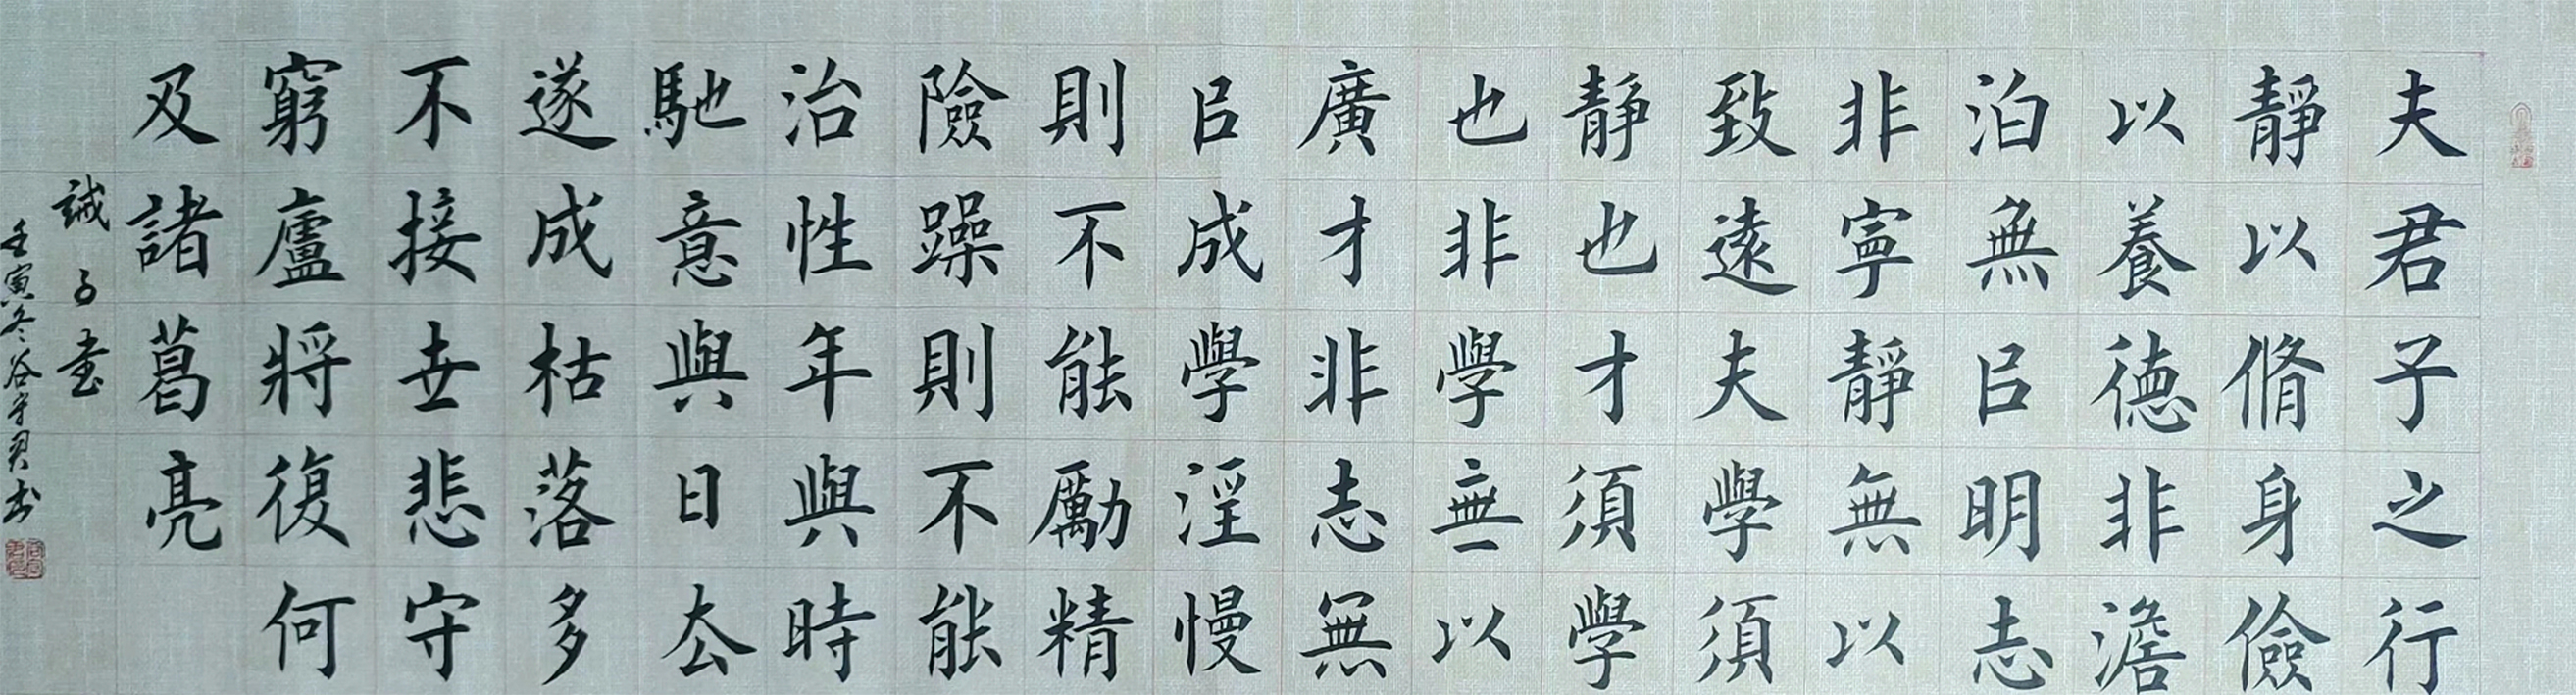 夫君子之行
靜以脩身儉
以養德非澹
泊無㠯明志
非寧靜無以
致遠夫學須
靜也才須學
也非學無以
廣才非志無
㠯成學淫慢
則不能勵精
險躁則不能
治性年與時
馳意與日去
遂成枯落多
不接世悲守
窮廬將復何
及諸葛亮
誡子書
壬寅冬谷守君书